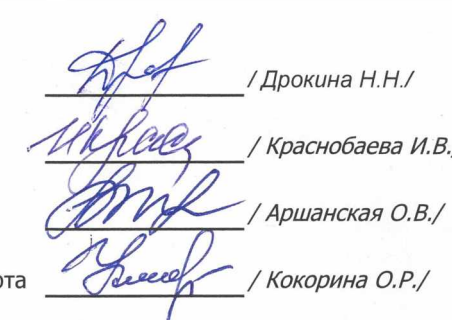 / Дрокина Н.Н./
/ Краснобаева И.В.
/ Аршанская О.В./
ота / Кокорина О.Р./